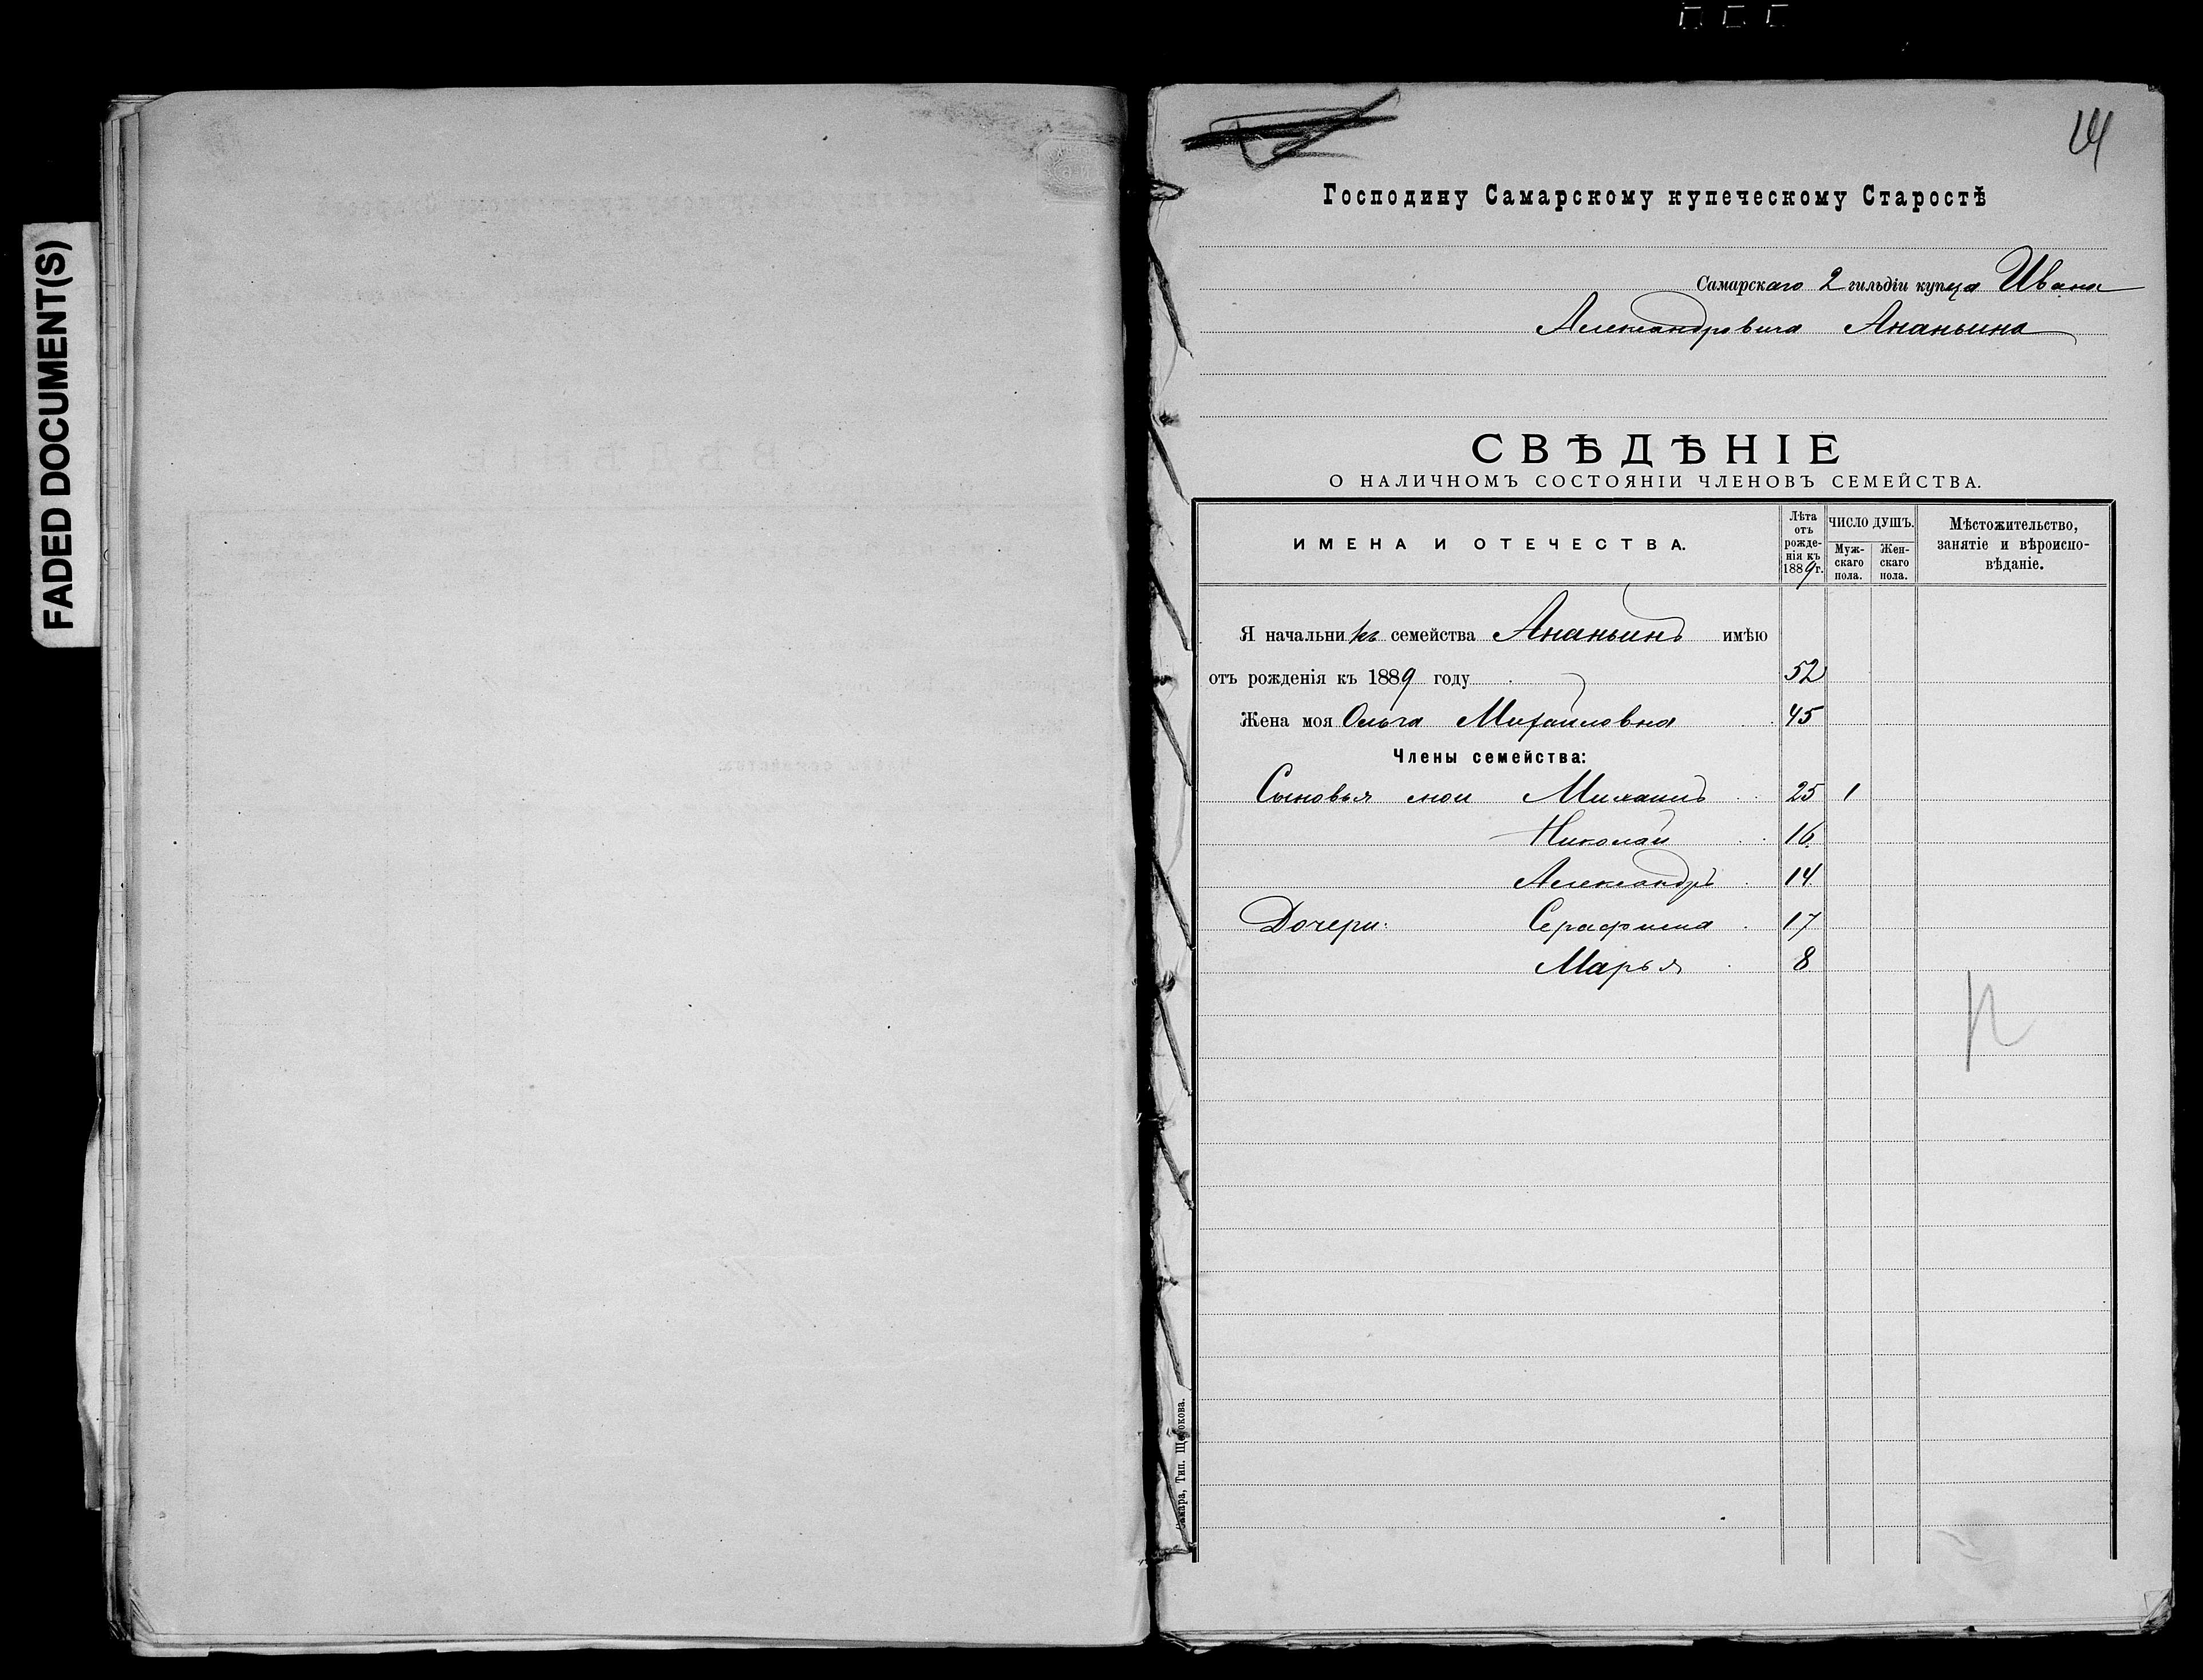 FADED DOCUMENT(S)
Господину Самарскому купеческому Старостѣ
Самарскаго 2 гильдіи купца Ивана
Александровича Ананьина
СВѢДѢНІЕ
О НАЛИЧНОМЪ СОСТОЯНІИ ЧЛЕНОВЪ СЕМЕЙСТВА.
ИМЕНА И ОТЕЧЕСТВА.
Лѣта отъ рожде-нія къ 1889 г.
ЧИСЛО ДУШЪ.
Муж-скаго пола.
Жен-скаго пола.
Мѣстожительство, занятіе и вѣроиспо-вѣданіе.
Я начальникъ семейства Ананьинъ имѣю
отъ рожденія къ 1889 году 52
Жена моя Ольга Михайловна 45
Члены семейства:
Сыновья мои Михаилъ 25 1
Николай 16
Александръ 14
Дочери: Серафима 17
Марья 8
Самара, Тип. Щелокова.